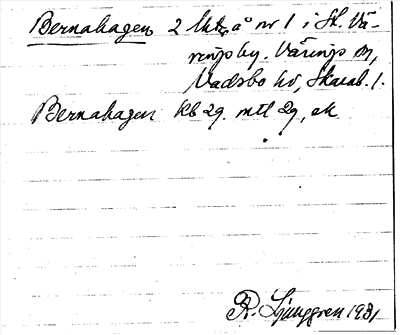 Bernahagen 2 lht å nr 1 i St. Vä-
ringsby. Värings sn,
Vadsbo hd, Skarab. l.
Bernahagen Kb 29. mtl 29, ek
R. Ljunggren 1931